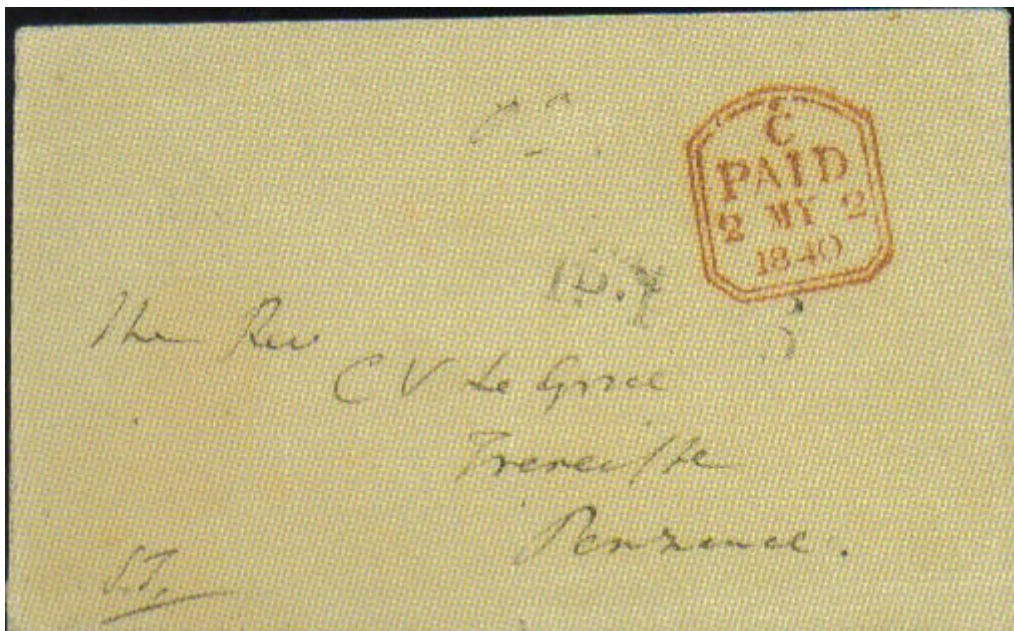 C
PAID
2 MY 2
1840
The Rev
C V Le Grice
Trereiffe
Penzance.